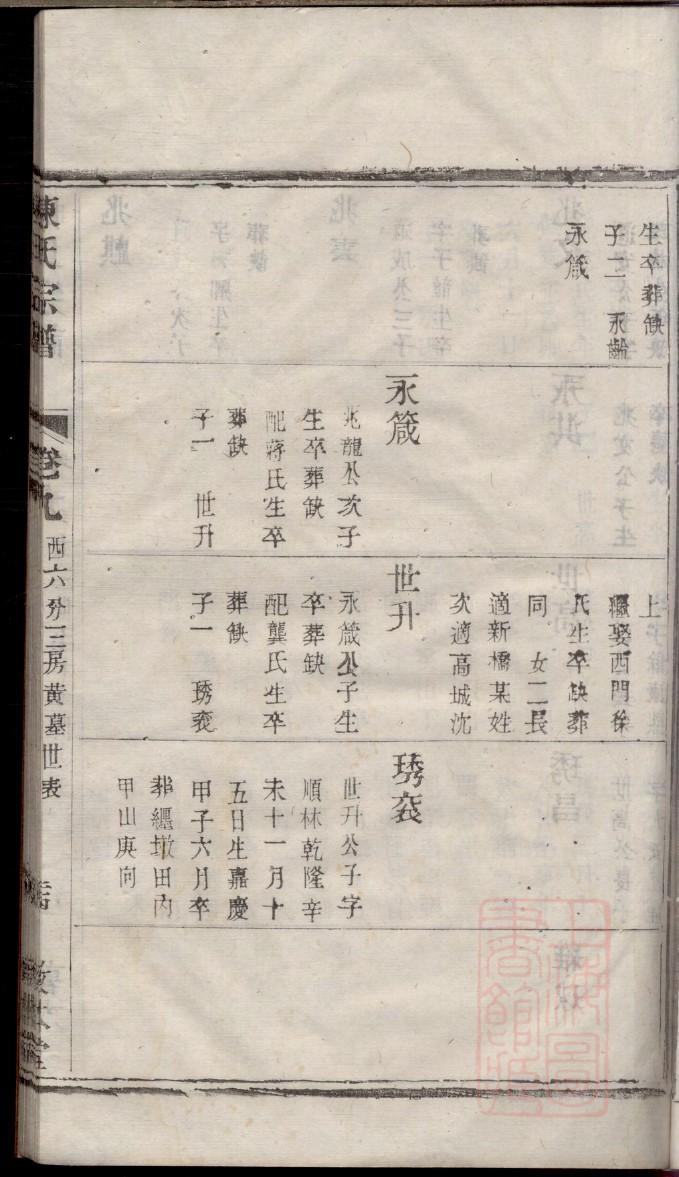 生卒葬缺
子二 永齡
永箴
永箴
兆龍公次子
生卒葬缺
配蔣氏生卒
葬缺
子一 世升
上
繼娶西門徐
氏生卒缺葬
同 女二長
適新橋某姓
次適高城沈
世升
永箴公子生
卒葬缺
配龔氏生卒
葬缺
子一 琇袞
琇袞
世升公子字
順林乾隆辛
未十一月十
五日生嘉慶
甲子六月卒
葬繮墩田內
甲山庚向
陳氏宗譜
卷九
西六分三房黃墓世表